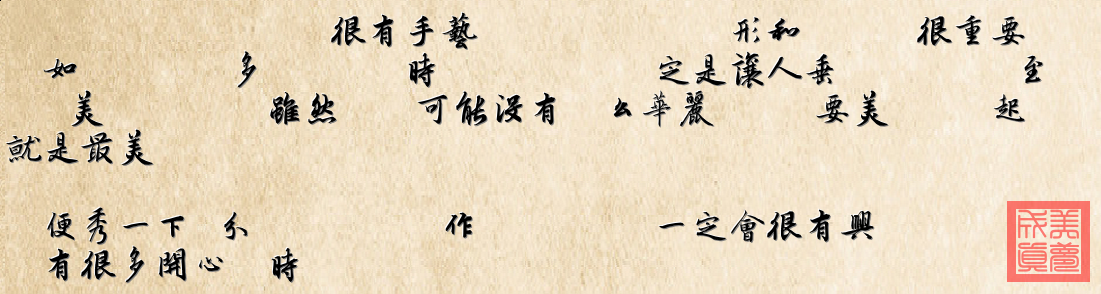 很有手藝 形和 很重要
如 多 時 定是讓人垂 至
美 雖然 可能沒有 么華麗 要美 起
就是最美
便秀一下 尒 作 一定會很有興
有很多開心 時
美夢成真